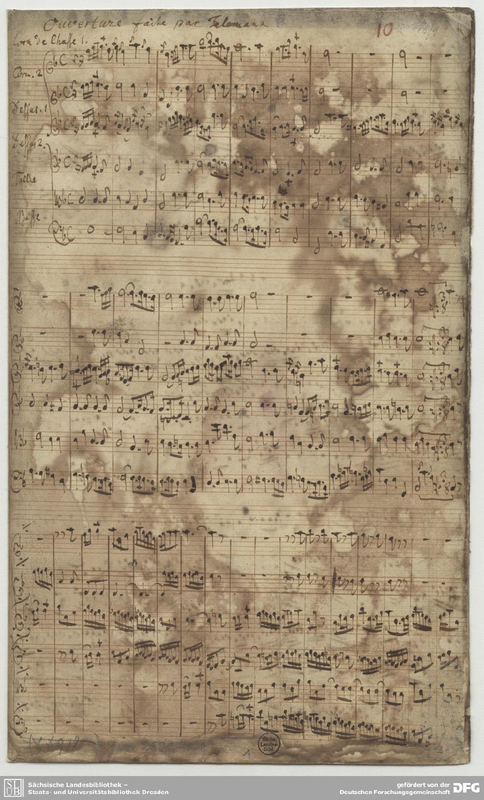 Ouverture faite par Telemann
10
Corn de Chasse 1.
Corn. 2
Dessus. 1
Dessus 2.
Taille
Basse
Sächsische Landesbibliothek –
Staats- und Universitätsbibliothek Dresden
gefördert von der
Deutschen Forschungsgemeinschaft
DFG